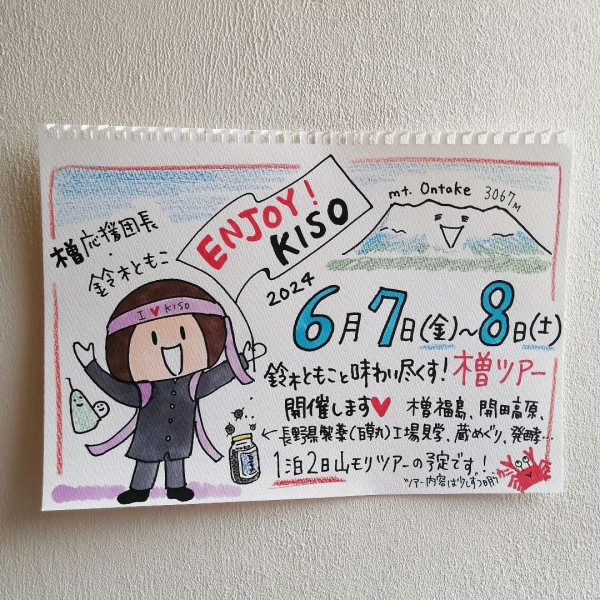 ENJOY!
KISO
mt. Ontake 3067M
木曽応援団長
鈴木ともこ
I ♥ KISO
2024
6月7日(金)~8日(土)
鈴木ともこと味わい尽くす!木曽ツアー
開催します♥ 木曽福島、開田高原、
←長野県製薬(百草丸)工場見学、蔵めぐり、発酵…
1泊2日山モリツアーの予定です!
ツアー内容は少しずつ